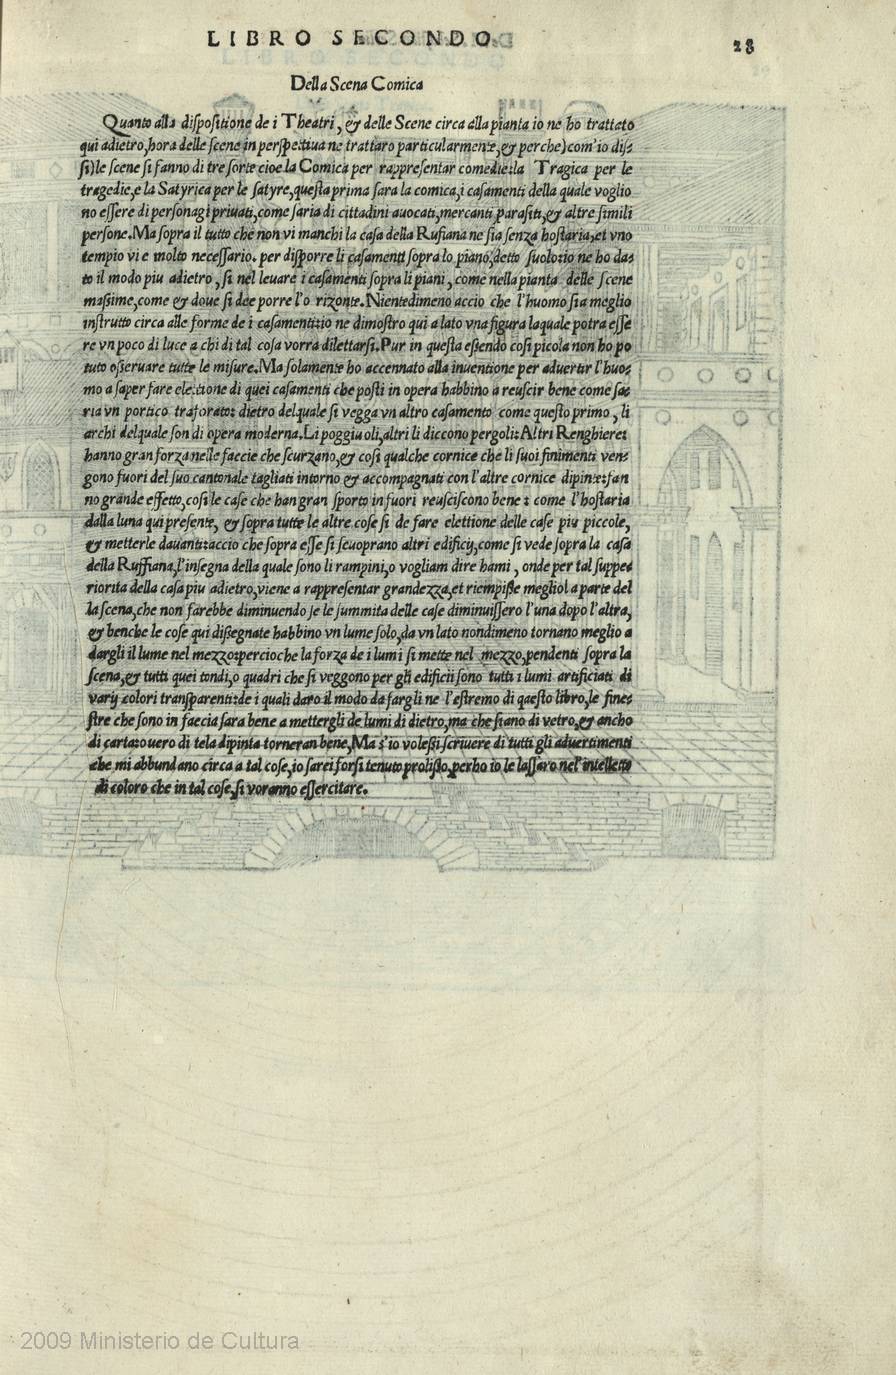 LIBRO SECONDO.
28
Della Scena Comica
Quanto alla dispositione de i Theatri, & delle Scene circa alla pianta io ne ho trattato
qui adietro, hora delle scene in perspettiua ne trattaro particularmente, & perche) com'io dis=
si) le scene si fanno di tre sorte cioe la Comica per rappresentar comedie: la Tragica per le
tragedie, e la Satyrica per le satyre, questa prima sara la comica, i casamenti della quale voglio
no essere di personagi priuati, come saria di cittadini auocati, mercanti parasiti, & altre simili
persone. Ma sopra il tutto che non vi manchi la casa della Rufiana ne sia senza hostaria, et vno
tempio vi e molto necessario. per disporre li casamenti sopra lo piano, detto suolo: io ne ho da=
to il modo piu adietro, si nel leuare i casamenti sopra li piani, come nella pianta delle scene
massime, come & doue si dee porre l'o rizonte. Nientedimeno accio che l'huomo sia meglio
instrutto circa alle forme de i casamenti: io ne dimostro qui a lato vna figura laquale potra esse
re vn poco di luce a chi di tal cosa vorra dilettarsi. Pur in questa essendo cosi picola non ho po
tuto osseruare tutte le misure. Ma solamente ho accennato alla inuentione per aduertir l'huo=
mo a saper fare elettione di quei casamenti che posti in opera habbino a reuscir bene come sa=
ria vn portico traforato: dietro delquale si vegga vn altro casamento come questo primo, li
archi delquale son di opera moderna. Li poggiuoli, altri li diccono pergoli: Altri Renghiere:
hanno gran forza nelle faccie che scurzano, & cosi qualche cornice che li suoi finimenti ven=
gono fuori del suo cantonale tagliati intorno & accompagnati con l'altre cornice dipinte: fan
no grande effetto, cosi le case che han gran sporto in fuori reusciscono bene: come l'hostaria
dalla luna qui presente, & sopra tutte le altre cose si de fare elettione delle case piu piccole,
& metterle dauanti: accio che sopra esse si scuoprano altri edificij, come si vede sopra la casa
della Ruffiana, l'insegna della quale sono li rampini, o vogliam dire hami, onde per tal suppe=
riorita della casa piu adietro, viene a rappresentar grandezza, et riempisse meglio l a parte del
la scena, che non farebbe diminuendo se le summita delle case diminuissero l'una dopo l'altra,
& benche le cose qui dissegnate habbino vn lume solo, da vn lato nondimeno tornano meglio a
dargli il lume nel mezzo: percioche la forza de i lumi si mette nel mezzo, pendenti sopra la
scena, & tutti quei tondi, o quadri che si veggono per gli edificii sono tutti i lumi artificiati di
varij colori transparenti: de i quali daro il modo da fargli ne l'estremo di questo libro, le fine=
stre che sono in faccia sara bene a mettergli de lumi di dietro, ma che siano di vetro, & ancho
di carta: ouero di tela dipinta torneran bene, Ma s'io volessi scriuere di tutti gli aduertimenti
che mi abbundano circa a tal cose, io sarei forsi tenuto prolisso, perho io le lassaro nel'intelletto
di coloro che in tal cose, si voranno essercitare.
2009 Ministerio de Cultura